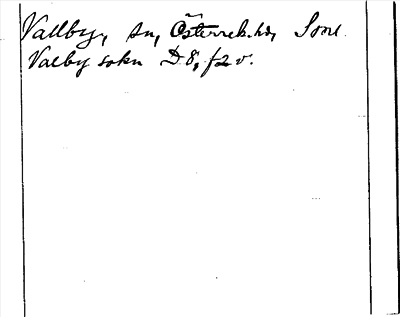 Vallby, sn, Österrek. hd, Söml.
Valby sokn D8, f2v.